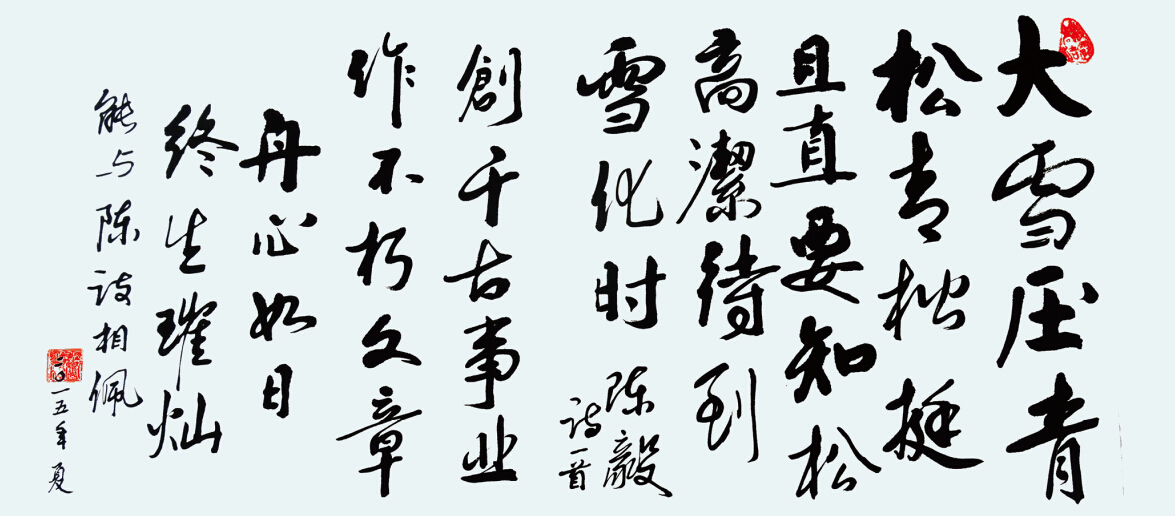 大雪压青
松青松挺
且直要知松
高潔待到
雪化时
陈毅
诗一首
創千古事业
作不朽文章
丹心如日
终生璀灿
能与陈诗相佩
二〇一五年夏